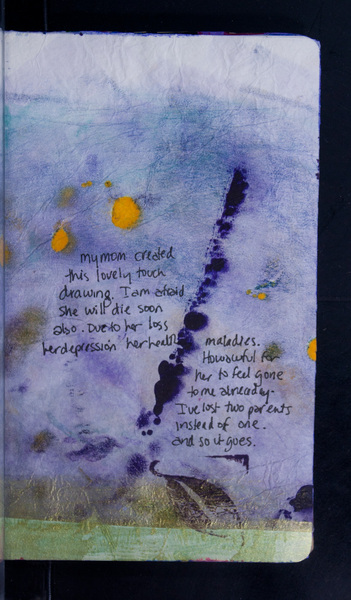 my mom created
this lovely touch
drawing. I am afraid
she will die soon
also. Due to her loss
her depression her health
maladies.
How awful for
her to feel gone
to me already.
I've lost two parents
instead of one.
and so it goes.